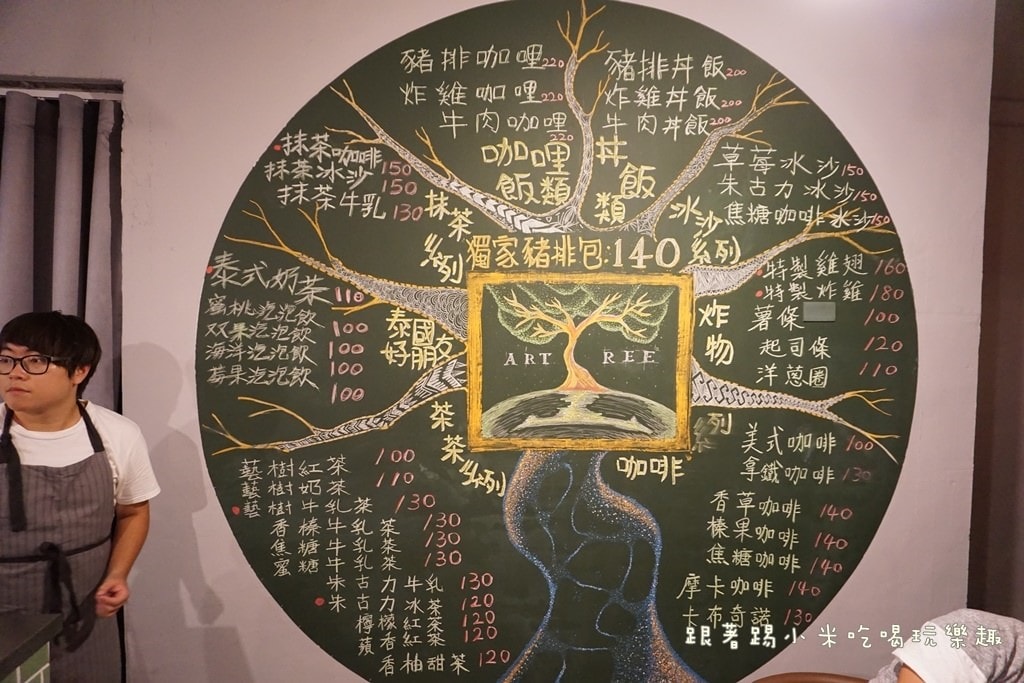 豬排咖哩220
炸雞咖哩220
牛肉咖哩220
咖哩飯類
豬排丼飯200
炸雞丼飯200
牛肉丼飯200
丼飯類
抹茶咖啡150
抹茶冰沙150
抹茶牛乳130
抹茶系列
草莓冰沙150
朱古力冰沙150
焦糖咖啡冰沙150
冰沙系列
獨家豬排包:140
泰式奶茶110
蜜桃泡泡飲100
双果泡泡飲100
海洋泡泡飲100
莓果泡泡飲100
泰國好朋友
特製雞翅160
特製炸雞180
薯條100
起司條120
洋蔥圈110
炸物
ART REE
茶茶系列
藝樹紅茶100
藝樹奶茶110
藝樹牛乳茶130
香榛牛乳茶130
焦糖牛乳茶130
蜜糖牛乳茶130
朱古力牛乳130
朱古力冰茶120
檸檬紅茶120
蘋香紅茶120
香柚甜茶120
咖啡系列
美式咖啡100
拿鐵咖啡130
香草咖啡140
榛果咖啡140
焦糖咖啡140
摩卡咖啡140
卡布奇諾130
跟著踢小米吃喝玩樂趣